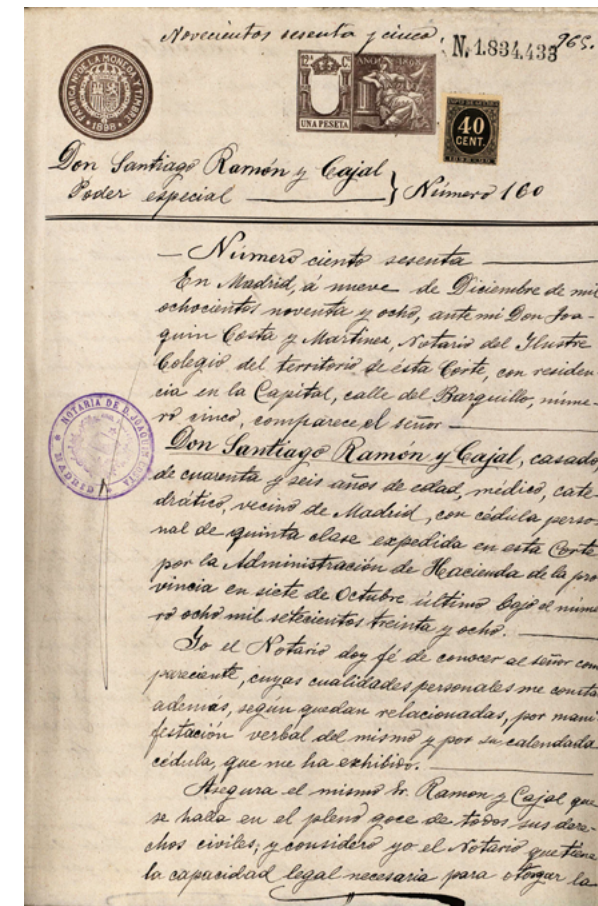 Novecientos sesenta y cinco.
N. 1.834.433
965.
FABRICA N. DE LA MONEDA Y TIMBRE
1898
12ª C.
AÑO 1898
UNA PESETA
40
CENT.
1898-99
Don Santiago Ramón y Cajal
Poder especial } Número 160
— Número ciento sesenta —
En Madrid, á nueve de Diciembre de mil
ochocientos noventa y ocho, ante mi Don Joa-
quin Costa y Martinez, Notario del Ilustre
Colegio del territorio de ésta Corte, con residen-
cia en la Capital, calle del Barquillo, núme-
ro cinco, comparece el señor —
Don Santiago Ramón y Cajal, casado,
de cuarenta y seis años de edad, médico, cate-
drático, vecino de Madrid, con cédula perso-
nal de quinta clase expedida en esta Corte
por la Administración de Hacienda de la pro
vincia en siete de Octubre último bajo el núme
ro ocho mil setecientos treinta y ocho. —
Yo el Notario doy fé de conocer al señor com
pareciente, cuyas cualidades personales me consta
además, según quedan relacionadas, por mani
festación verbal del mismo y por su calendada
cédula, que me ha exhibido. —
Asegura el mismo Sr. Ramon y Cajal que
se halla en el pleno goce de todos sus dere-
chos civiles; y considero yo el Notario que tiene
la capacidad legal necesaria para otorgar la
NOTARIA DE D. JOAQUIN COSTA
MADRID